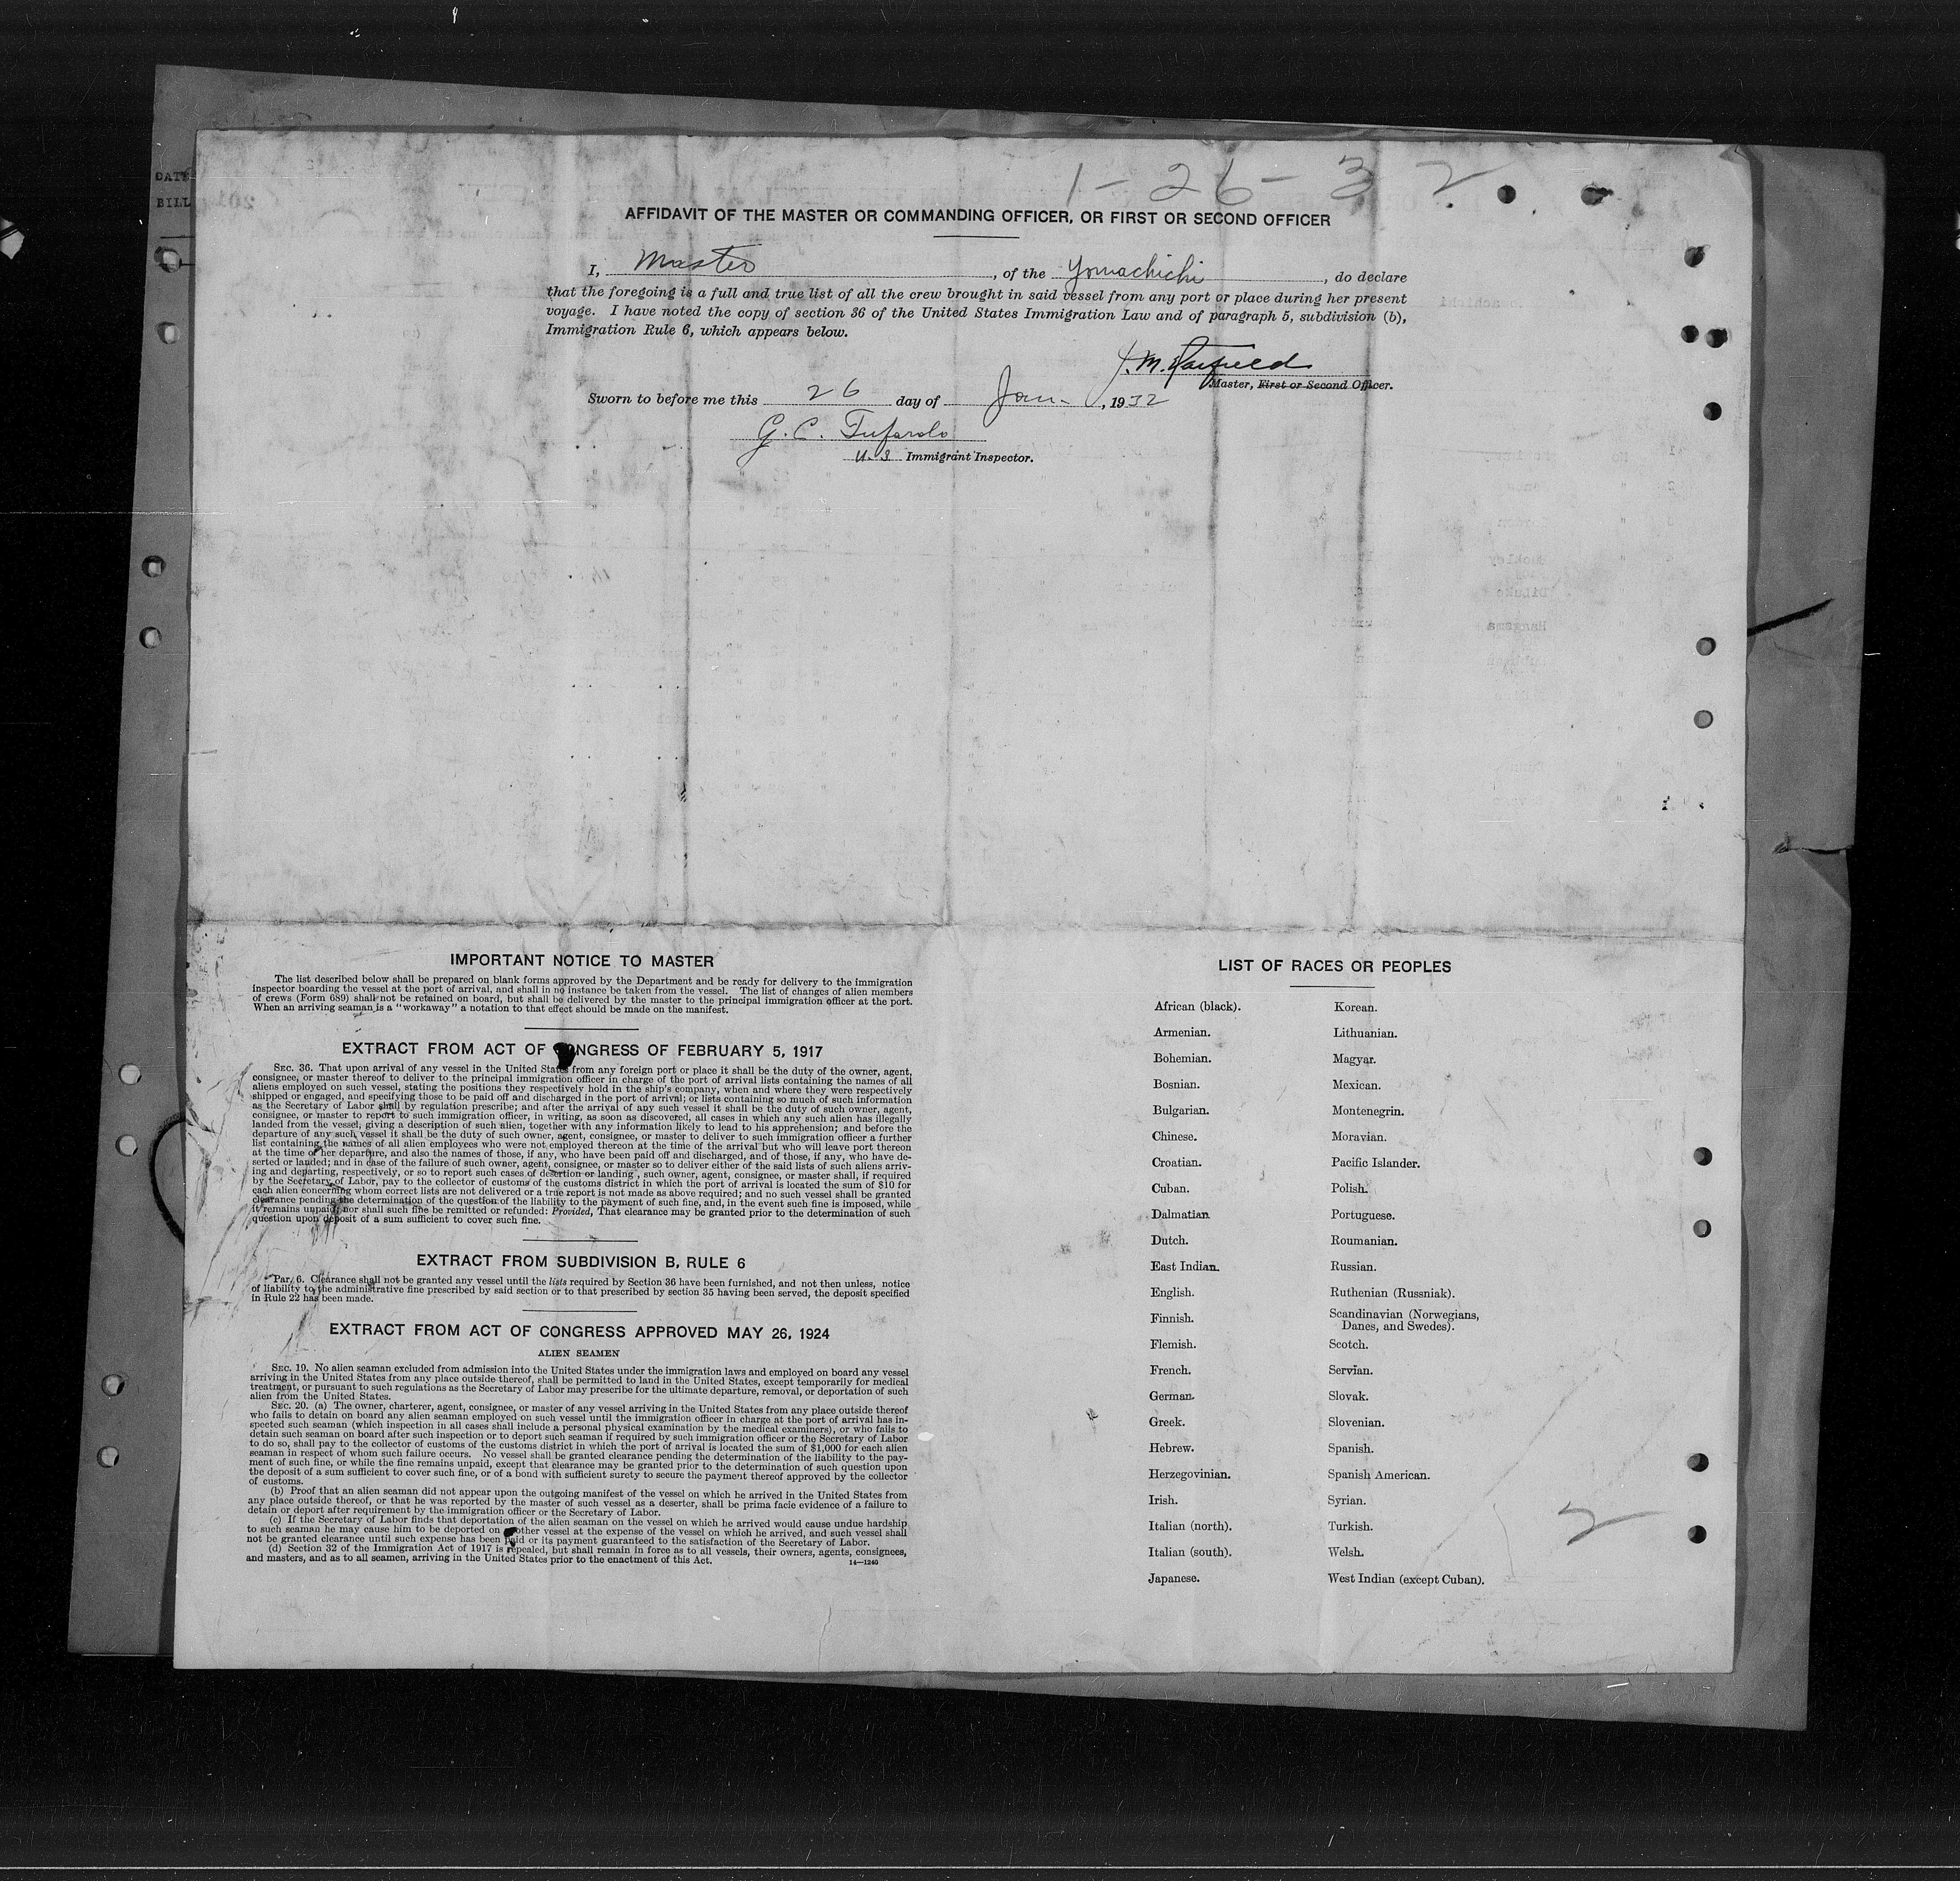 1-26-32
DATE
BILL
AFFIDAVIT OF THE MASTER OR COMMANDING OFFICER, OR FIRST OR SECOND OFFICER
I, Master, of the Yomachichi, do declare
that the foregoing is a full and true list of all the crew brought in said vessel from any port or place during her present
voyage. I have noted the copy of section 36 of the United States Immigration Law and of paragraph 5, subdivision (b),
Immigration Rule 6, which appears below.
J. M.
Master, First or Second Officer.
Sworn to before me this 26 day of Jan., 1932
G. C.
U.S. Immigrant Inspector.
IMPORTANT NOTICE TO MASTER
The list described below shall be prepared on blank forms approved by the Department and be ready for delivery to the immigration
inspector boarding the vessel at the port of arrival, and shall in no instance be taken from the vessel. The list of changes of alien members
of crews (Form 689) shall not be retained on board, but shall be delivered by the master to the principal immigration officer at the port.
When an arriving seaman is a "workaway" a notation to that effect should be made on the manifest.
EXTRACT FROM ACT OF CONGRESS OF FEBRUARY 5, 1917
SEC. 36. That upon arrival of any vessel in the United States from any foreign port or place it shall be the duty of the owner, agent,
consignee, or master thereof to deliver to the principal immigration officer in charge of the port of arrival lists containing the names of all
aliens employed on such vessel, stating the positions they respectively hold in the ship's company, when and where they were respectively
shipped or engaged, and specifying those to be paid off and discharged in the port of arrival; or lists containing so much of such information
as the Secretary of Labor shall by regulation prescribe; and after the arrival of any such vessel it shall be the duty of such owner, agent,
consignee, or master to report to such immigration officer, in writing, as soon as discovered, all cases in which any such alien has illegally
landed from the vessel, giving a description of such alien, together with any information likely to lead to his apprehension; and before the
departure of any such vessel it shall be the duty of such owner, agent, consignee, or master to deliver to such immigration officer a further
list containing the names of all alien employees who were not employed thereon at the time of the arrival but who will leave port thereon
at the time of her departure, and also the names of those, if any, who have been paid off and discharged, and of those, if any, who have de-
serted or landed; and in case of the failure of such owner, agent, consignee, or master so to deliver either of the said lists of such aliens arriv-
ing and departing, respectively, or so to report such cases of desertion or landing, such owner, agent, consignee, or master shall, if required
by the Secretary of Labor, pay to the collector of customs of the customs district in which the port of arrival is located the sum of $10 for
each alien concerning whom correct lists are not delivered or a true report is not made as above required; and no such vessel shall be granted
clearance pending the determination of the question of the liability to the payment of such fine, and, in the event such fine is imposed, while
it remains unpaid; nor shall such fine be remitted or refunded: Provided, That clearance may be granted prior to the determination of such
question upon deposit of a sum sufficient to cover such fine.
EXTRACT FROM SUBDIVISION B, RULE 6
Par. 6. Clearance shall not be granted any vessel until the lists required by Section 36 have been furnished, and not then unless, notice
of liability to the administrative fine prescribed by said section or to that prescribed by section 35 having been served, the deposit specified
in Rule 22 has been made.
EXTRACT FROM ACT OF CONGRESS APPROVED MAY 26, 1924
ALIEN SEAMEN
SEC. 19. No alien seaman excluded from admission into the United States under the immigration laws and employed on board any vessel
arriving in the United States from any place outside thereof, shall be permitted to land in the United States, except temporarily for medical
treatment, or pursuant to such regulations as the Secretary of Labor may prescribe for the ultimate departure, removal, or deportation of such
alien from the United States.
SEC. 20. (a) The owner, charterer, agent, consignee, or master of any vessel arriving in the United States from any place outside thereof
who fails to detain on board any alien seaman employed on such vessel until the immigration officer in charge at the port of arrival has in-
spected such seaman (which inspection in all cases shall include a personal physical examination by the medical examiners), or who fails to
detain such seaman on board after such inspection or to deport such seaman if required by such immigration officer or the Secretary of Labor
to do so, shall pay to the collector of customs of the customs district in which the port of arrival is located the sum of $1,000 for each alien
seaman in respect of whom such failure occurs. No vessel shall be granted clearance pending the determination of the liability to the pay-
ment of such fine, or while the fine remains unpaid, except that clearance may be granted prior to the determination of such question upon
the deposit of a sum sufficient to cover such fine, or of a bond with sufficient surety to secure the payment thereof approved by the collector
of customs.
(b) Proof that an alien seaman did not appear upon the outgoing manifest of the vessel on which he arrived in the United States from
any place outside thereof, or that he was reported by the master of such vessel as a deserter, shall be prima facie evidence of a failure to
detain or deport after requirement by the immigration officer or the Secretary of Labor.
(c) If the Secretary of Labor finds that deportation of the alien seaman on the vessel on which he arrived would cause undue hardship
to such seaman he may cause him to be deported on another vessel at the expense of the vessel on which he arrived, and such vessel shall
not be granted clearance until such expense has been paid or its payment guaranteed to the satisfaction of the Secretary of Labor.
(d) Section 32 of the Immigration Act of 1917 is repealed, but shall remain in force as to all vessels, their owners, agents, consignees,
and masters, and as to all seamen, arriving in the United States prior to the enactment of this Act.
14—1240
LIST OF RACES OR PEOPLES
African (black). Korean.
Armenian. Lithuanian.
Bohemian. Magyar.
Bosnian. Mexican.
Bulgarian. Montenegrin.
Chinese. Moravian.
Croatian. Pacific Islander.
Cuban. Polish.
Dalmatian. Portuguese.
Dutch. Roumanian.
East Indian. Russian.
English. Ruthenian (Russniak).
Finnish. Scandinavian (Norwegians,
Danes, and Swedes).
Flemish. Scotch.
French. Servian.
German. Slovak.
Greek. Slovenian.
Hebrew. Spanish.
Herzegovinian. Spanish American.
Irish. Syrian.
Italian (north). Turkish.
Italian (south). Welsh.
Japanese. West Indian (except Cuban).
2